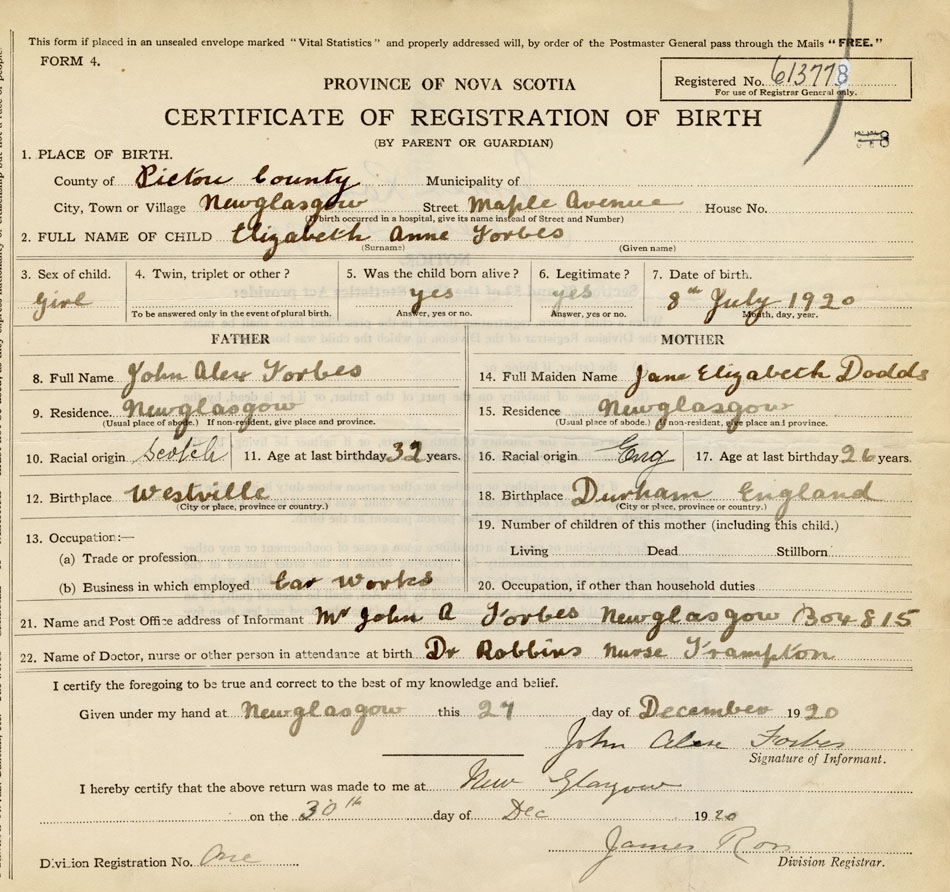 This form if placed in an unsealed envelope marked "Vital Statistics" and properly addressed will, by order of the Postmaster General pass through the Mails "FREE."
FORM 4.
Registered No. 613778
For use of Registrar General only.
PROVINCE OF NOVA SCOTIA
CERTIFICATE OF REGISTRATION OF BIRTH
(BY PARENT OR GUARDIAN)
1. PLACE OF BIRTH.
County of Pictou County Municipality of
City, Town or Village Newglasgow Street Maple Avenue House No.
(If birth occurred in a hospital, give its name instead of Street and Number)
2. FULL NAME OF CHILD Elizabeth Anne Forbes
(Surname) (Given name)
3. Sex of child. 4. Twin, triplet or other? 5. Was the child born alive? 6. Legitimate? 7. Date of birth.
Girl yes yes 8th July 1920
To be answered only in the event of plural birth. Answer, yes or no. Answer, yes or no. Month, day, year.
FATHER MOTHER
8. Full Name John Alex Forbes 14. Full Maiden Name Jane Elizabeth Dodds
9. Residence. Newglasgow 15. Residence Newglasgow
(Usual place of abode.) If non-resident, give place and province. (Usual place of abode.) If non-resident, give place and province.
10. Racial origin Scotch 11. Age at last birthday 32 years. 16. Racial origin Eng 17. Age at last birthday 26 years.
12. Birthplace Westville 18. Birthplace Durham England
(City or place, province or country.) (City or place, province or country.)
13. Occupation:— 19. Number of children of this mother (including this child.)
(a) Trade or profession Living Dead Stillborn
(b) Business in which employed Car Works 20. Occupation, if other than household duties
21. Name and Post Office address of Informant Mr John A Forbes Newglasgow Box 815
22. Name of Doctor, nurse or other person in attendance at birth Dr Robbins Nurse Frampton
I certify the foregoing to be true and correct to the best of my knowledge and belief.
Given under my hand at Newglasgow this 27 day of December 1920
John Alex Forbes
Signature of Informant.
I hereby certify that the above return was made to me at New Glasgow
on the 30th day of Dec 1920
James Ross
Division Registration No. One Division Registrar.